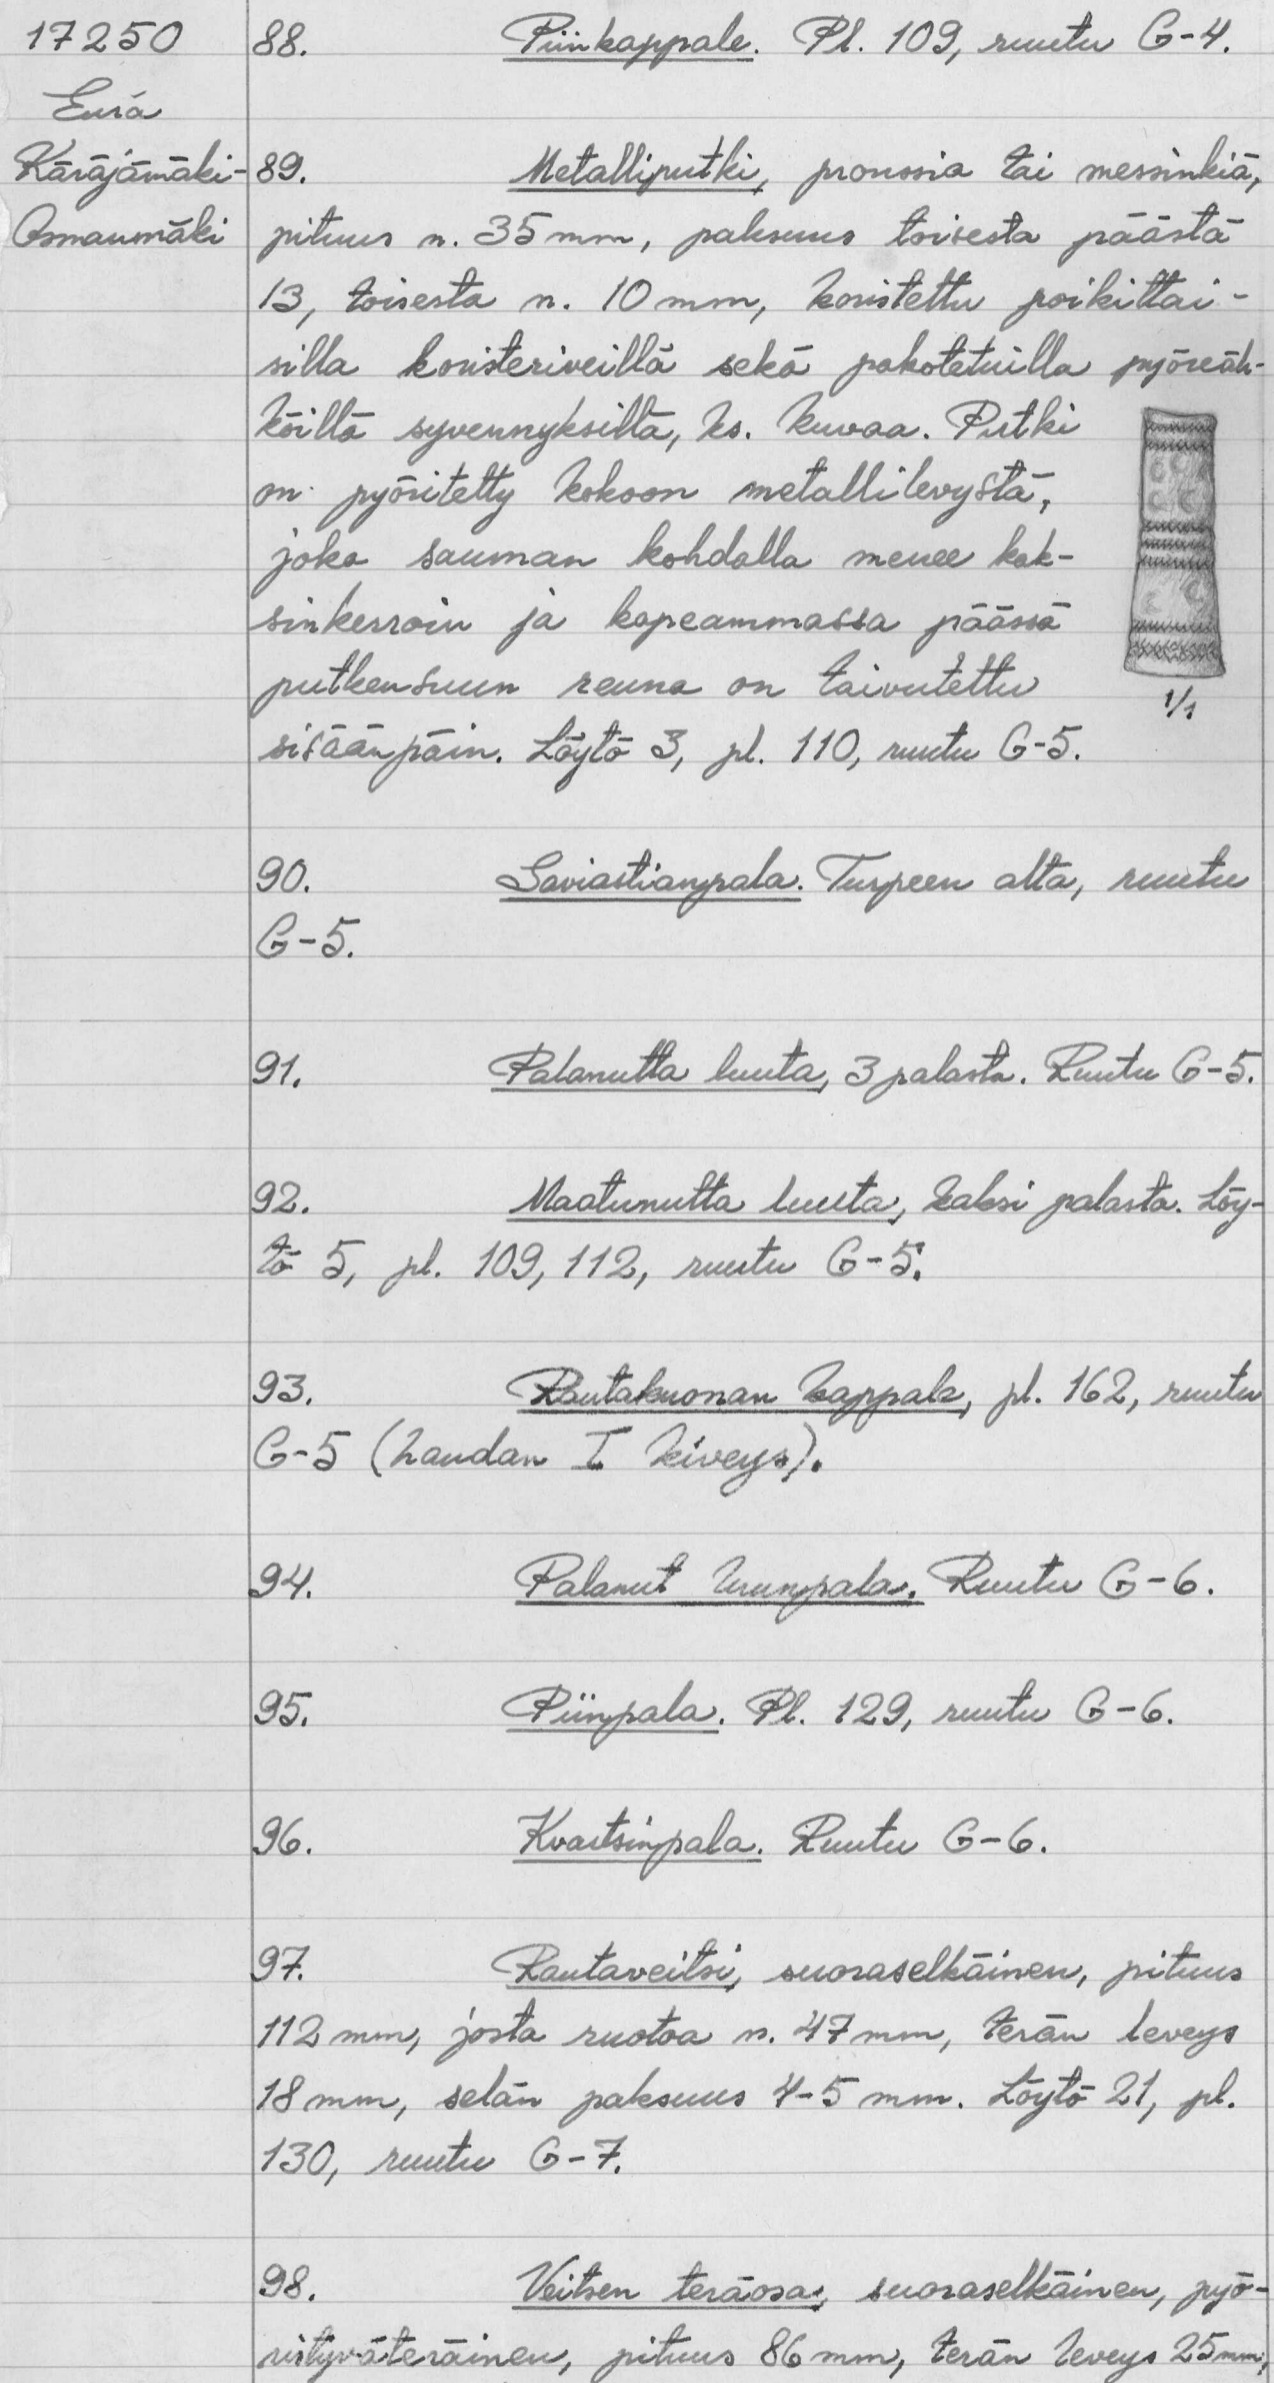 17250
Eura
Käräjämäki-
Osmanmäki
88. Piinkappale. Pl. 109, ruutu G-4.
89. Metalliputki, pronssia tai messinkiä,
pituus n. 35 mm, paksuus toisesta päästä
13, toisesta n. 10 mm, koristettu poikittai-
silla koisteriveillä sekä pakotetuilla pyöreäh-
köillä syvennyksillä, ks. kuvaa. Putki
on pyöritetty kokoon metallilevystä,
joka sauman kohdalla menee kak-
sinkerroin ja kapeammassa päässä
putkensuun reuna on taivutettu
sisäänpäin. Löytö 3, pl. 110, ruutu G-5.
1/1
90. Saviastianpala. Turpeen alta, ruutu
G-5.
91. Palanutta luuta, 3 palasta. Ruutu G-5.
92. Maatunutta luuta, kaksi palasta. Löy-
tö 5, pl. 109, 112, ruutu G-5.
93. Rautakuonan kappale, pl. 162, ruutu
G-5 (haudan I kiveys).
94. Palanut luunpala. Ruutu G-6.
95. Piinpala. Pl. 129, ruutu G-6.
96. Kvartsinpala. Ruutu G-6.
97. Rautaveitsi, suoraselkäinen, pituus
112 mm, josta ruotoa n. 47 mm, terän leveys
18 mm, selän paksuus 4-5 mm. Löytö 21, pl.
130, ruutu G-7.
98. Veitsen teräosa, suoraselkäinen, pyö-
ristyväteräinen, pituus 86 mm, terän leveys 25 mm,